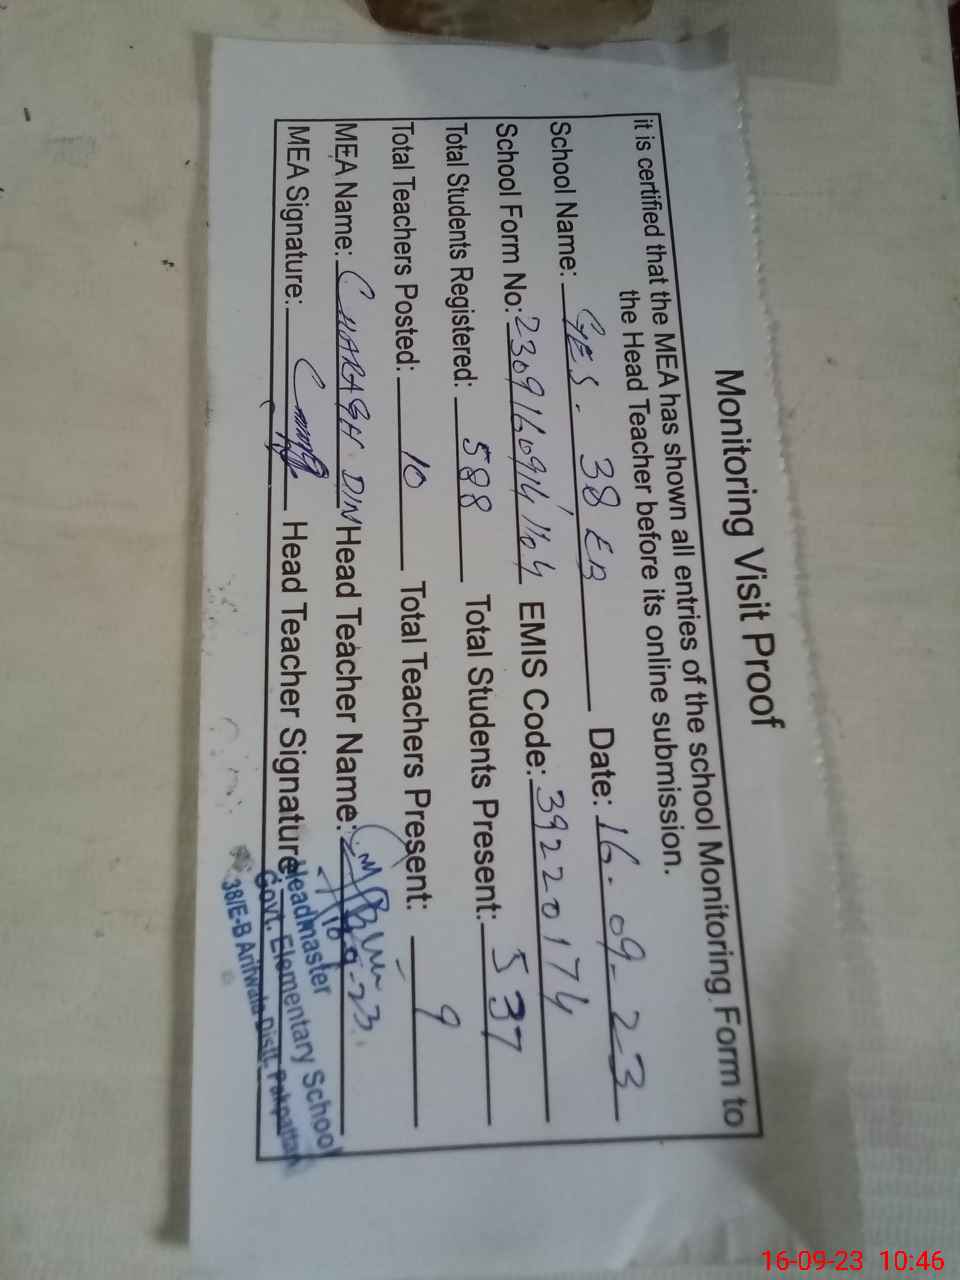 Monitoring Visit Proof
it is certified that the MEA has shown all entries of the school Monitoring Form to
the Head Teacher before its online submission.
School Name: GES. 38 EB Date: 16-09-23
School Form No: EMIS Code: 39220174
Total Students Registered: 588 Total Students Present: 537
Total Teachers Posted: 10 Total Teachers Present: 9
MEA Name: CHARAGH DIN Head Teacher Name:
MEA Signature: Head Teacher Signature:
Headmaster
Govt. Elementary School
38/E-B Arifwala Distt. Pakpattan
16-09-23 10:46